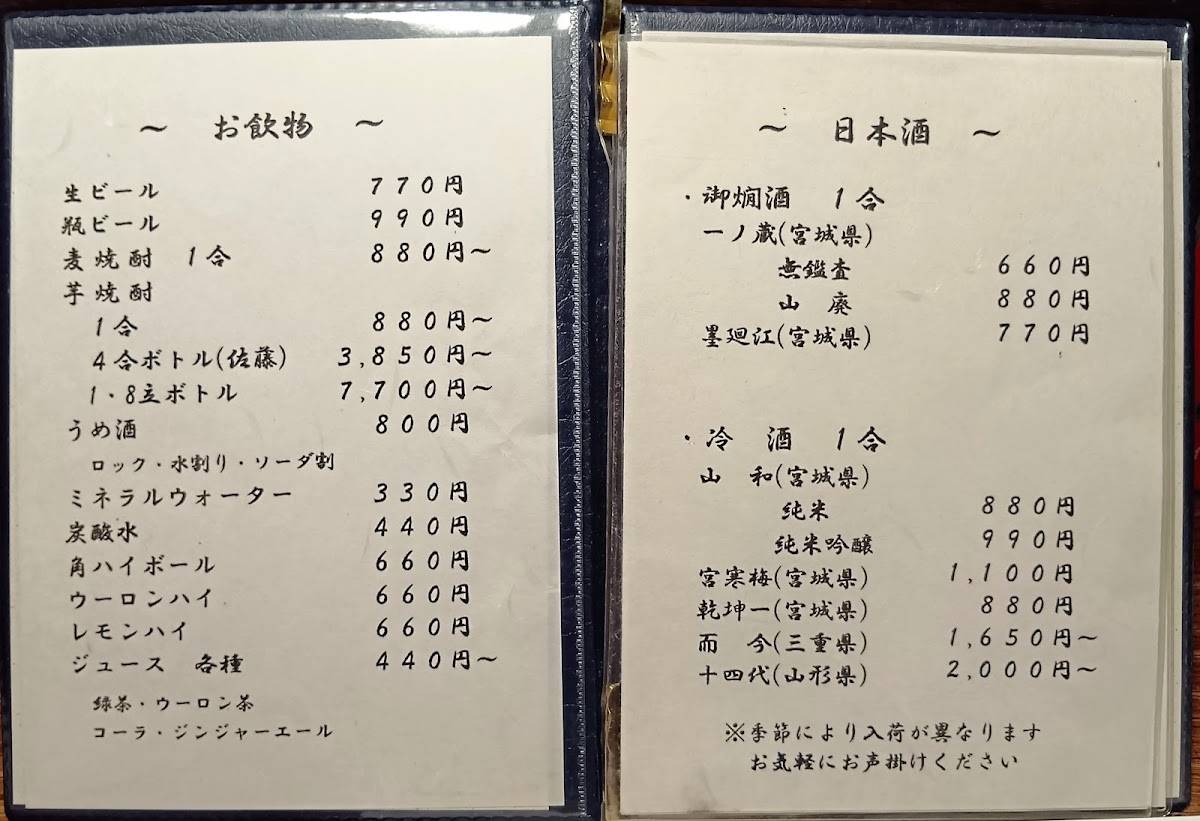 ～ お飲物 ～
生ビール 770円
瓶ビール 990円
麦焼酎 1合 880円～
芋焼酎
1合 880円～
4合ボトル(佐藤) 3,850円～
1・8立ボトル 7,700円～
うめ酒 800円
ロック・水割り・ソーダ割
ミネラルウォーター 330円
炭酸水 440円
角ハイボール 660円
ウーロンハイ 660円
レモンハイ 660円
ジュース 各種 440円～
緑茶・ウーロン茶
コーラ・ジンジャーエール
～ 日本酒 ～
・御燗酒 1合
一ノ蔵(宮城県)
無鑑査 660円
山 廃 880円
墨廼江(宮城県) 770円
・冷 酒 1合
山 和(宮城県)
純米 880円
純米吟醸 990円
宮寒梅(宮城県) 1,100円
乾坤一(宮城県) 880円
而 今(三重県) 1,650円～
十四代(山形県) 2,000円～
※季節により入荷が異なります
お気軽にお声掛けください